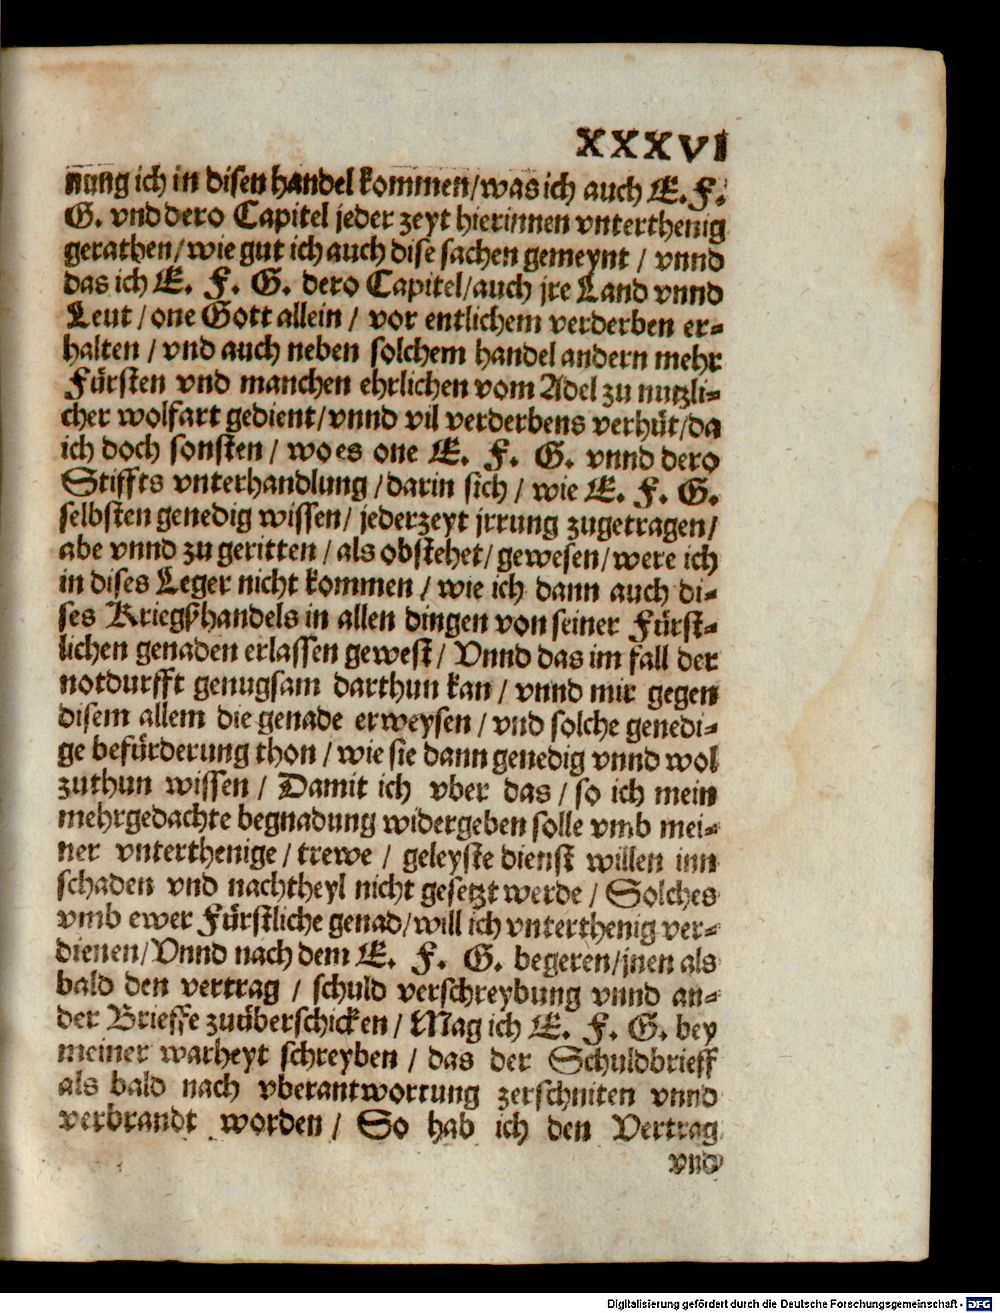 XXXVI
nung ich in disen handel kommen/was ich auch E. F.
G. vnd dero Capitel jeder zeyt hierinnen vnterthenig
gerathen/wie gut ich auch dise sachen gemeynt / vnnd
das ich E. F. G. dero Capitel/auch jre Land vnnd
Leut / one Gott allein / vor entlichem verderben er-
halten / vnd auch neben solchem handel andern mehr
Fürsten vnd manchen ehrlichen vom Adel zu nutzli-
cher wolfart gedient/vnnd vil verderbens verhüt/da
ich doch sonsten / wo es one E. F. G. vnnd dero
Stiffts vnterhandlung /darin sich / wie E. F. G.
selbsten genedig wissen/ jederzeyt jrrung zugetragen/
abe vnnd zu geritten / als obstehet/ gewesen/ were ich
in dises Leger nicht kommen / wie ich dann auch di-
ses Kriegßhandels in allen dingen von seiner Fürst-
lichen genaden erlassen gewest / Vnnd das im fall der
notdurfft genugsam darthun kan / vnnd mir gegen
disem allem die genade erweysen / vnd solche genedi-
ge befürderung thon / wie sie dann genedig vnnd wol
zuthun wissen / Damit ich vber das / so ich mein
mehrgedachte begnadung widergeben solle vmb mei-
ner vnterthenige / trewe / geleyste dienst willen inn
schaden vnd nachtheyl nicht gesetzt werde / Solches
vmb ewer Fürstliche genad/will ich vnterthenig ver-
dienen/Vnnd nach dem E. F. G. begeren/jnen als
bald den vertrag / schuld verschreybung vnnd an-
der Brieffe zuüberschicken / Mag ich E. F. G. bey
meiner warheyt schreyben / das der Schuldbrieff
als bald nach vberantwortung zerschniten vnnd
verbrandt worden / So hab ich den Vertrag
vnd
Digitalisierung gefördert durch die Deutsche Forschungsgemeinschaft - DFG